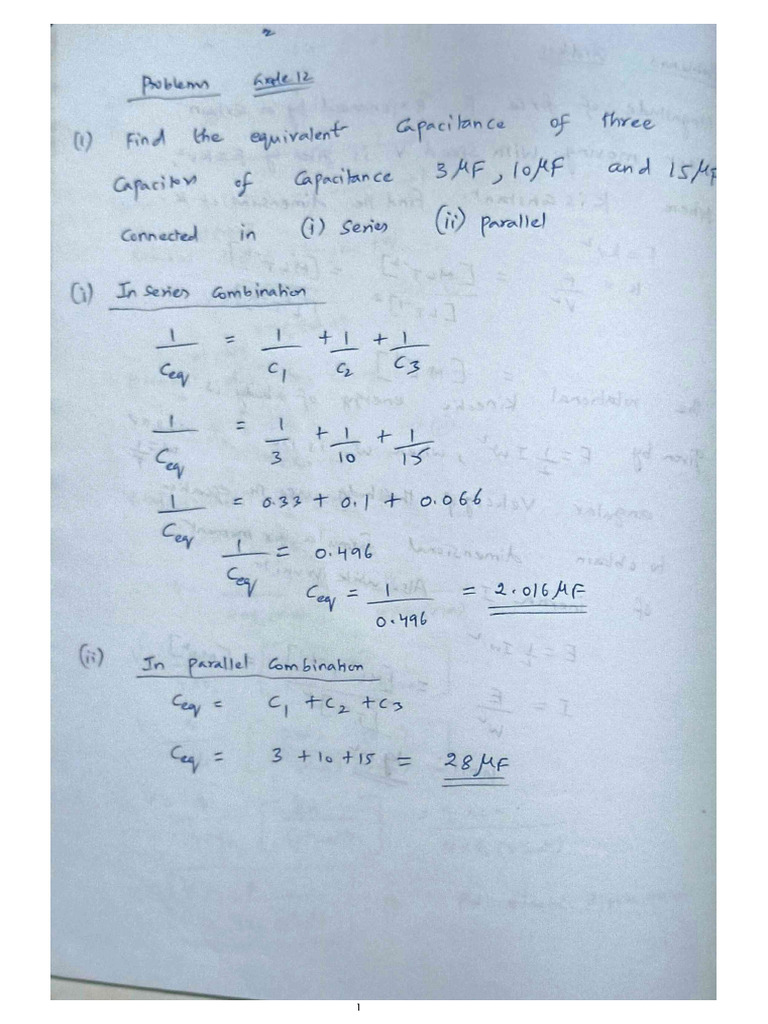 Problems Grade 12
(1) Find the equivalent Capacitance of three
Capacitors of Capacitance 3 μF, 10 μF and 15 μF
Connected in (i) Series (ii) parallel
(i) In series Combination
1/Ceq = 1/C1 + 1/C2 + 1/C3
1/Ceq = 1/3 + 1/10 + 1/15
1/Ceq = 0.33 + 0.1 + 0.066
1/Ceq = 0.496
Ceq = 1/0.496 = 2.016 μF
(ii) In parallel Combination
Ceq = C1 + C2 + C3
Ceq = 3 + 10 + 15 = 28 μF
1